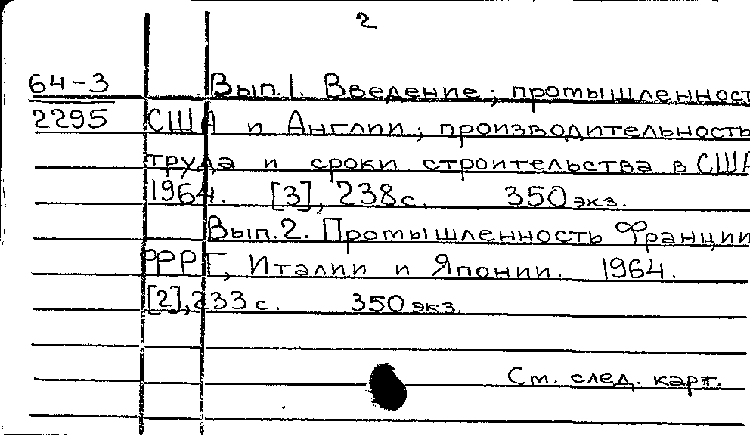 2
64-3 Вып.1. Введение; промышленност
2295 США и Англии; производительность
труда и сроки строительства в США
1964. [3], 238с. 350экз.
Вып.2. Промышленность Франции
ФРГ, Италии и Японии. 1964.
[2], 233 с. 350 экз.
См. след. карт.